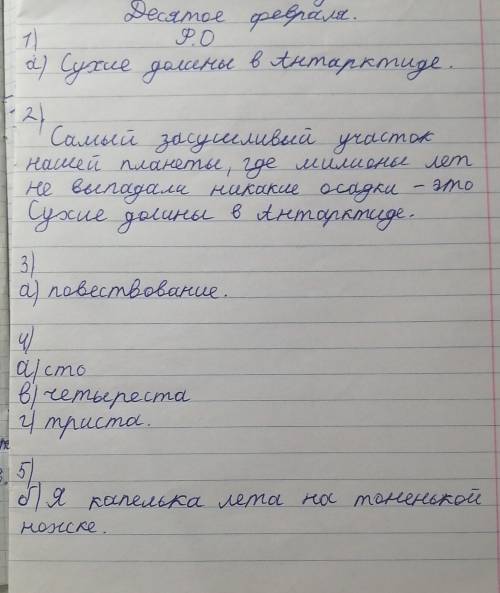 Десятое февраля.
1) Р.О
а) Сухие долины в Антарктиде.
2)
Самый засушливый участок
нашей планеты, где милионы лет
не выпадали никакие осадки - это
Сухие долины в Антарктиде.
3)
а) повествование.
4)
а) сто
в) четыреста
г) триста.
5)
б) Я капелька лета на тоненькой
ножке.